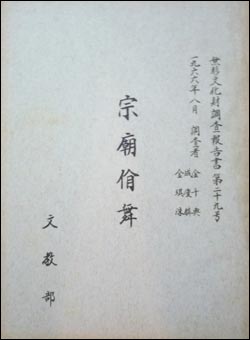 無形文化財調査報告書 第二十九号
一九六六年八月 調査者 金千興
成慶麟
金琪洙
宗廟佾舞
文教部